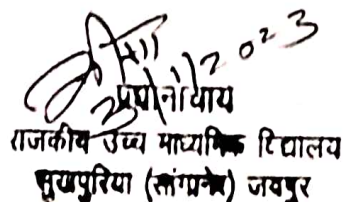 2023
प्रधानाचार्य
राजकीय उच्च माध्यमिक विद्यालय
सुखपुरिया (सांगानेर) जयपुर